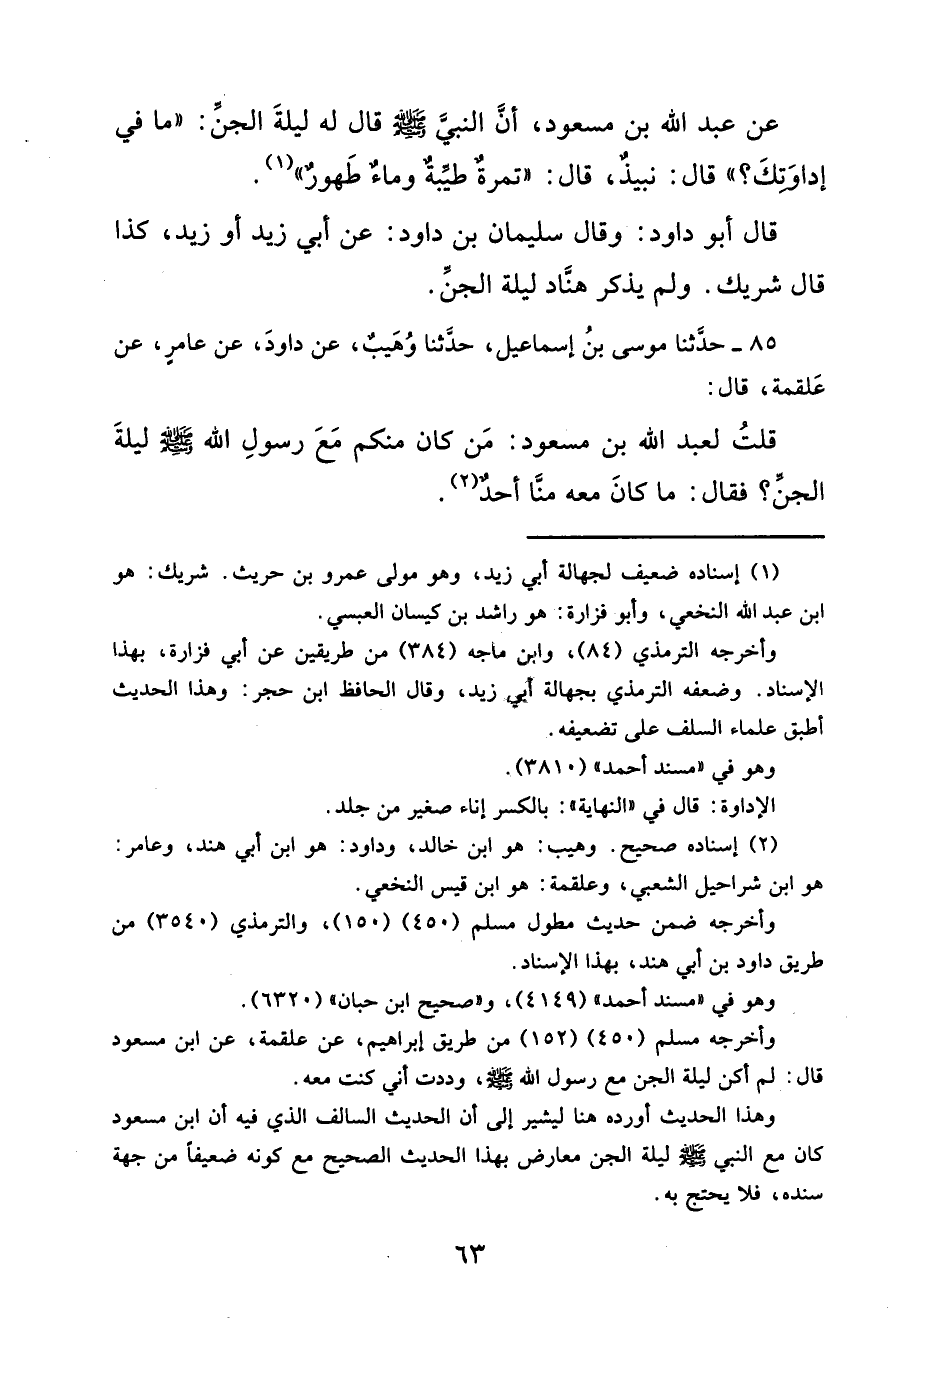 عن عبد الله بن مسعود، أنَّ النبيَّ ﷺ قال له ليلةَ الجنِّ: «ما في
إداوَتِكَ؟» قال: نبيذٌ، قال: «تمرةٌ طيِّبةٌ وماءٌ طَهورٌ»(١).
قال أبو داود: وقال سليمان بن داود: عن أبي زيد أو زيد، كذا
قال شريك. ولم يذكر هنَّاد ليلة الجنِّ.
٨٥ ـ حدَّثنا موسى بنُ إسماعيل، حدَّثنا وُهَيبٌ، عن داودَ، عن عامرٍ، عن
عَلقمة، قال:
قلتُ لعبد الله بن مسعود: مَن كان منكم مَعَ رسولِ الله ﷺ ليلةَ
الجنِّ؟ فقال: ما كانَ معه منَّا أحدٌ(٢).
(١) إسناده ضعيف لجهالة أبي زيد، وهو مولى عمرو بن حريث. شريك: هو
ابن عبد الله النخعي، وأبو فزارة: هو راشد بن كيسان العبسي.
وأخرجه الترمذي (٨٤)، وابن ماجه (٣٨٤) من طريقين عن أبي فزارة، بهذا
الإسناد. وضعفه الترمذي بجهالة أبي زيد، وقال الحافظ ابن حجر: وهذا الحديث
أطبق علماء السلف على تضعيفه.
وهو في «مسند أحمد» (٣٨١٠).
الإداوة: قال في «النهاية»: بالكسر إناء صغير من جلد.
(٢) إسناده صحيح. وهيب: هو ابن خالد، وداود: هو ابن أبي هند، وعامر:
هو ابن شراحيل الشعبي، وعلقمة: هو ابن قيس النخعي.
وأخرجه ضمن حديث مطول مسلم (٤٥٠) (١٥٠)، والترمذي (٣٥٤٠) من
طريق داود بن أبي هند، بهذا الإسناد.
وهو في «مسند أحمد» (٤١٤٩)، و«صحيح ابن حبان» (٦٣٢٠).
وأخرجه مسلم (٤٥٠) (١٥٢) من طريق إبراهيم، عن علقمة، عن ابن مسعود
قال: لم أكن ليلة الجن مع رسول الله ﷺ، وددت أني كنت معه.
وهذا الحديث أورده هنا ليشير إلى أن الحديث السالف الذي فيه أن ابن مسعود
كان مع النبي ﷺ ليلة الجن معارض بهذا الحديث الصحيح مع كونه ضعيفاً من جهة
سنده، فلا يحتج به.
٦٣